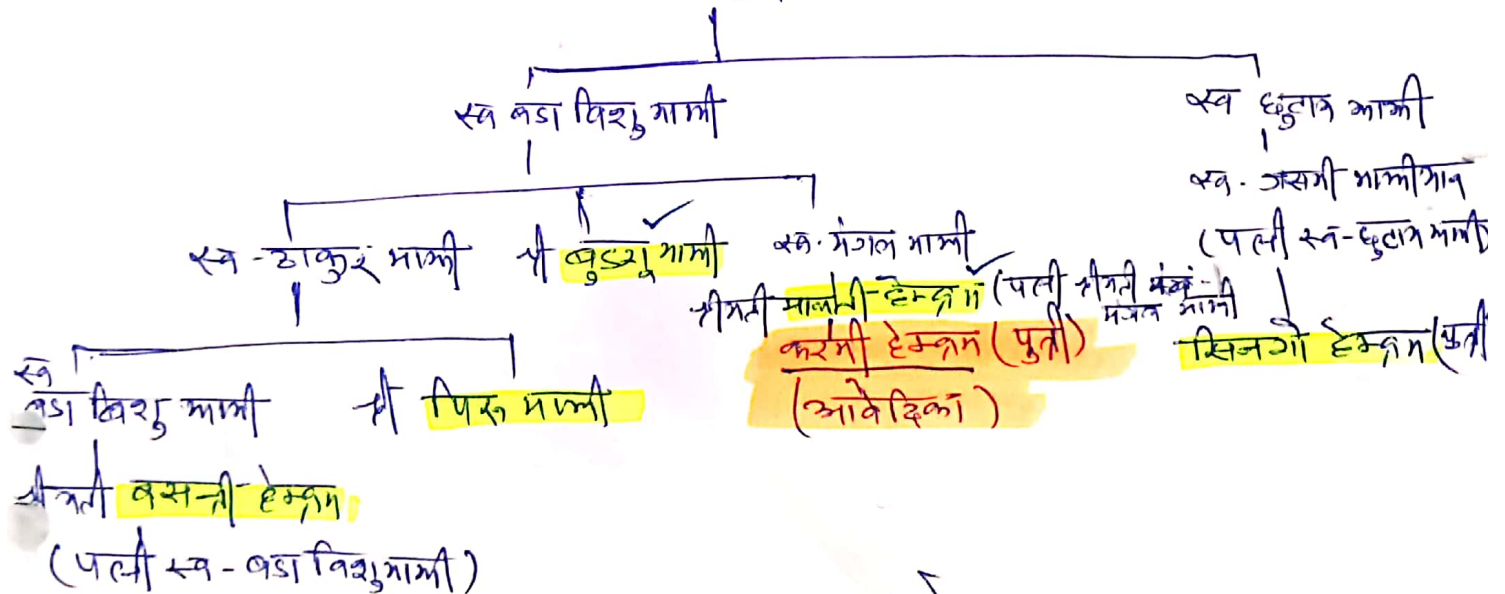 स्व बडा विशु माझी
स्व छुटाय माझी
स्व. जसमी माझीयान
(पत्नी स्व-छुटाय माझी)
स्व-ठाकुर माझी श्री बुडयू माझी स्व. मंगल माझी
श्रीमती हेम्ब्रम (पत्नी श्रीमती
मंगल माझी
करमी हेम्ब्रम (पुत्री)
(आवेदिका)
सिजगो हेम्ब्रम (पुत्री
स्व
बडा बिशु माझी श्री पिरू माझी
श्रीमती बसन्ती हेम्ब्रम
(पत्नी स्व-बडा विशु माझी)